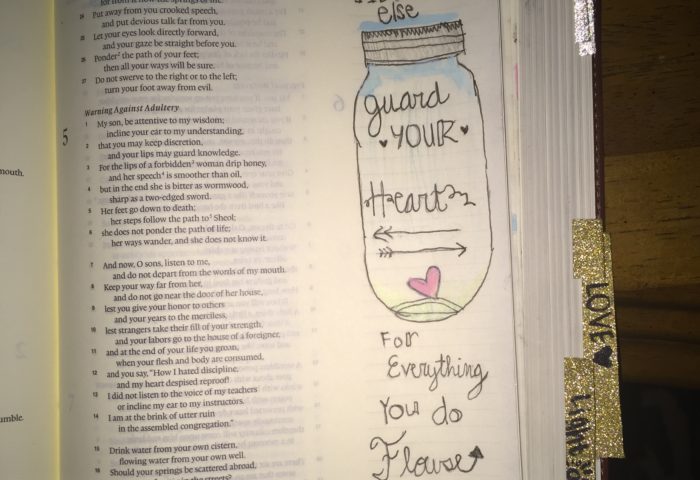 24 Put away from you crooked speech,
and put devious talk far from you.
25 Let your eyes look directly forward,
and your gaze be straight before you.
26 Ponder² the path of your feet;
then all your ways will be sure.
27 Do not swerve to the right or to the left;
turn your foot away from evil.
Warning Against Adultery
5
1 My son, be attentive to my wisdom;
incline your ear to my understanding,
2 that you may keep discretion,
and your lips may guard knowledge.
3 For the lips of a forbidden³ woman drip honey,
and her speech⁴ is smoother than oil,
4 but in the end she is bitter as wormwood,
sharp as a two-edged sword.
5 Her feet go down to death;
her steps follow the path to⁵ Sheol;
6 she does not ponder the path of life;
her ways wander, and she does not know it.
7 And now, O sons, listen to me,
and do not depart from the words of my mouth.
8 Keep your way far from her,
and do not go near the door of her house,
9 lest you give your honor to others
and your years to the merciless,
10 lest strangers take their fill of your strength,
and your labors go to the house of a foreigner,
11 and at the end of your life you groan,
when your flesh and body are consumed,
12 and you say, "How I hated discipline,
and my heart despised reproof!
13 I did not listen to the voice of my teachers
or incline my ear to my instructors.
14 I am at the brink of utter ruin
in the assembled congregation."
15 Drink water from your own cistern,
flowing water from your own well.
16 Should your springs be scattered abroad,
else
guard
YOUR
Heart
For
Everything
You do
Flowse
LOVE
mouth.
umble.